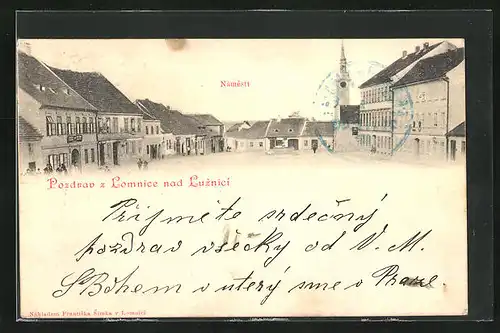 Náměstí
Pozdrav z Lomnice nad Lužnicí
Přijměte srdečný
pozdrav všecky od V. M.
S Bohem v úterý sme v Praze.
Nákladem Františka Šimka v Lomnici